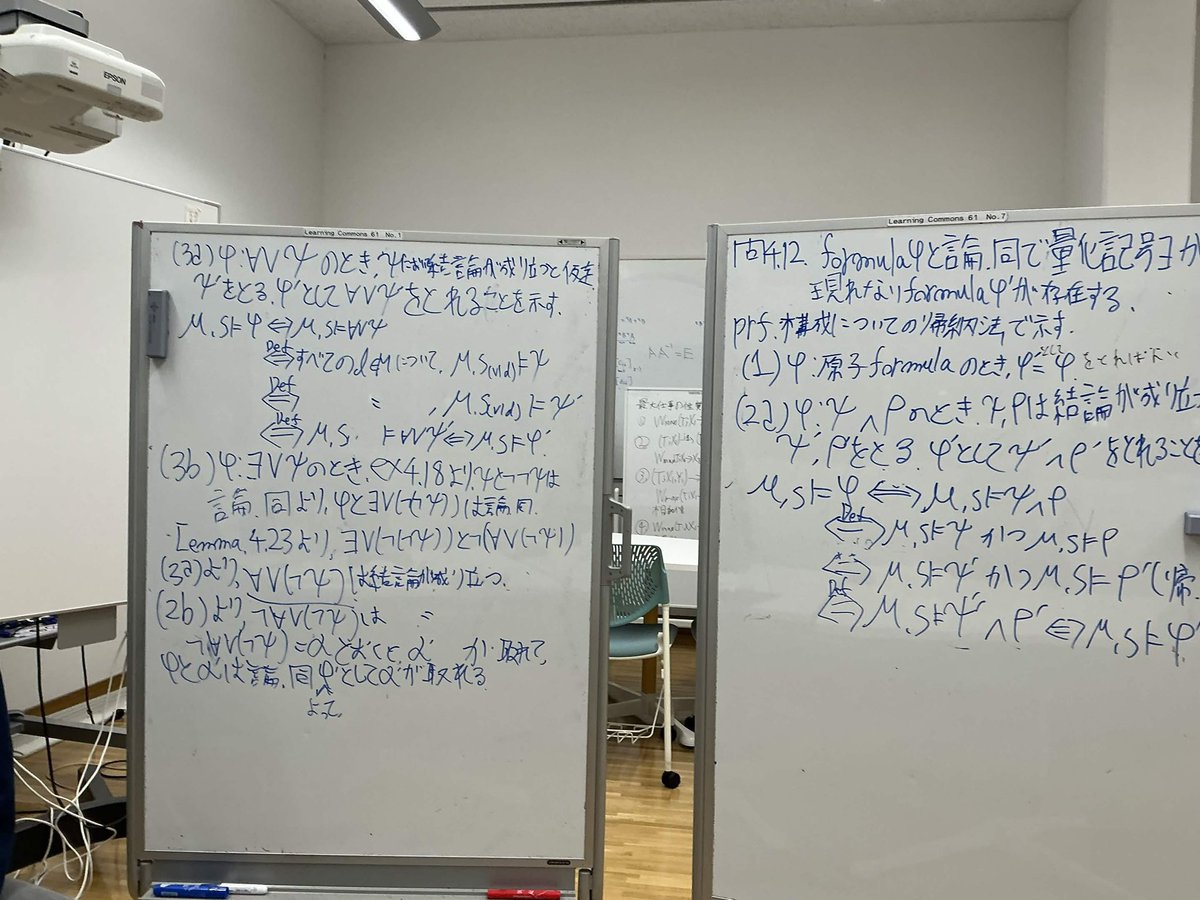 EPSON
EPSON
Learning Commons 61 No.1
(3a) φ:∀vψのとき,ψは結論が成り立つと仮定
ψ'をとる.φ'として∀vψ'をとれることを示す.
M,s⊨φ⇔M,s⊨∀vψ
⇔Def すべてのd∈Mについて, M,s(v|d)⊨ψ
⇔Def 〃 , M,s(v|d)⊨ψ'
⇔Def M,s ⊨∀vψ'⇔M,s⊨φ'
(3b) φ:∃vψのとき,ex4.18よりψと¬¬ψは
論.同より,φと∃v(¬(¬ψ))は論.同.
Lemma.4.23より,∃v(¬(¬ψ))と¬(∀v(¬ψ))
(3a)より,∀v(¬ψ)は結論が成り立つ.
(2b)より,¬∀v(¬ψ)は 〃
¬∀v(¬ψ)=αとおくと,α' が取れて,
φとα'は論.同φ'としてα'が取れる.
よって,
AA⁻¹=E
Learning Commons 61 No.7
問4.12. formulaφと論.同で量化記号∃が
現れないformulaφ'が存在する.
prf.構成についての帰納法で示す.
(1) φ:原子formulaのとき,φ'=φをとればよい
として
(2a) φ:ψ∧ρのときψ,ρは結論が成り立つ
ψ',ρ'をとる.φ'としてψ'∧ρ'をとれることを
M,s⊨φ⇔M,s⊨ψ∧ρ
⇔Def M,s⊨ψかつM,s⊨ρ
⇔ M,s⊨ψ'かつM,s⊨ρ'(帰.
⇔Def M,s⊨ψ'∧ρ'⇔M,s⊨φ'